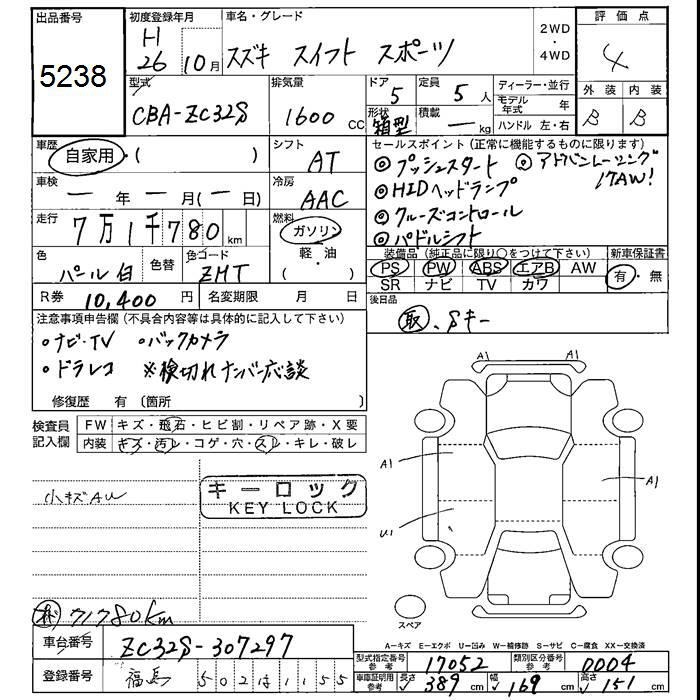 出品番号
5238
初度登録年月
H
26 10月
車名・グレード
スズキ スイフト スポーツ
2WD
・
4WD
評価点
4
外装 内装
B B
型式
CBA-ZC32S
排気量
1600 CC
ドア
5
定員
5人
形状
箱型
積載
— kg
ディーラー・並行
モデル年式 年
ハンドル 左・右
車歴
自家用・( )
シフト
AT
車検
— 年 — 月(— 日)
冷房
AAC
走行
7万1千780 km
燃料
ガソリン
軽・油
( )
色
パール白
色替
色コード
ZMT
R券 10,400円
名変期限 月 日
セールスポイント(正常に機能するものに限ります)
◎プッシュスタート ◎アドバンレーシング
17AW!
◎HIDヘッドランプ
◎クルーズコントロール
◎パドルシフト
装備品(純正品に限り○をつけて下さい)
PS PW ABS エアB AW
SR ナビ TV カワ
新車保証書
有・無
後日品
取、Sキー
注意事項申告欄(不具合内容等は具体的に記入して下さい)
・ナビ・TV ・バックカメラ
・ドラレコ ※検切れナンバー応談
修復歴 有(箇所 )
検査員
記入欄
FW キズ・飛石・ヒビ割・リペア跡・X要
内装 キズ・汚レ・コゲ・穴・スレ・キレ・破レ
小キズAW
キーロック
KEY LOCK
71780km
A1 A1
A1
A1
U1
スペア
A―キズ E―エクボ U―凹み W―補修跡 S―サビ C―腐食 XX―交換済
車台番号 ZC32S-307297
登録番号 福島 502は1155
型式指定番号 参考 17052
類別区分番号 参考 0004
車庫証明用 参考
長さ 389 cm 幅 169 cm 高さ 151 cm